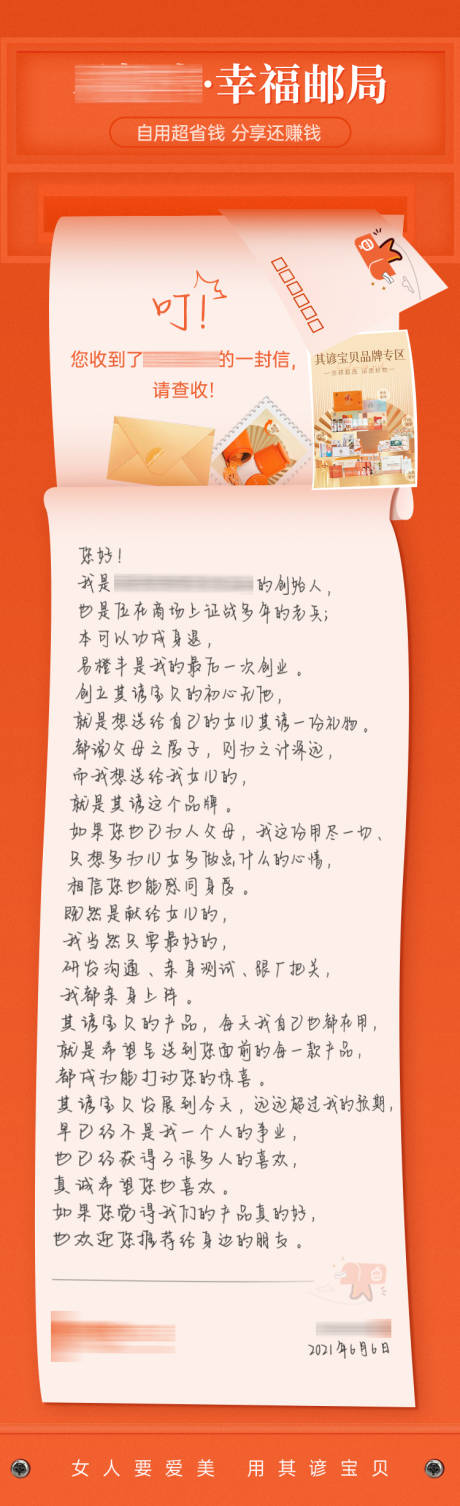 ·幸福邮局
自用超省钱 分享还赚钱
叮!
您收到了 的一封信,
请查收!
其谚宝贝品牌专区
您好!
我是 的创始人,
也是位在商场上证战多年的老兵;
本可以功成身退,
易橙丰是我的最后一次创业。
创立其谚宝贝的初心无他,
就是想送给自己的女儿其谚一份礼物。
都说父母之爱子,则为之计深远,
而我想送给我女儿的,
就是其谚这个品牌。
如果您也已为人父母,我这份用尽一切、
只想多为儿女多做点什么的心情,
相信您也能感同身受。
既然是献给女儿的,
我当然只要最好的,
研发沟通、亲身测试、跟厂把关,
我都亲身上阵。
其谚宝贝的产品,每天我自己也都在用,
就是希望呈送到您面前的每一款产品,
都成为能打动您的惊喜。
其谚宝贝发展到今天,远远超过我的预期,
早已经不是我一个人的事业,
也已经获得了很多人的喜欢,
真诚希望您也喜欢。
如果您觉得我们的产品真的好,
也欢迎您推荐给身边的朋友。
2021年6月6日
女人要爱美 用其谚宝贝